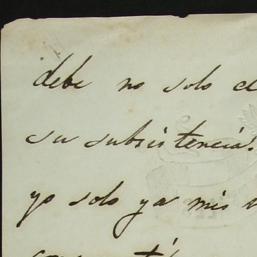 debe no solo
su subsistencia.
yo solo ya mis